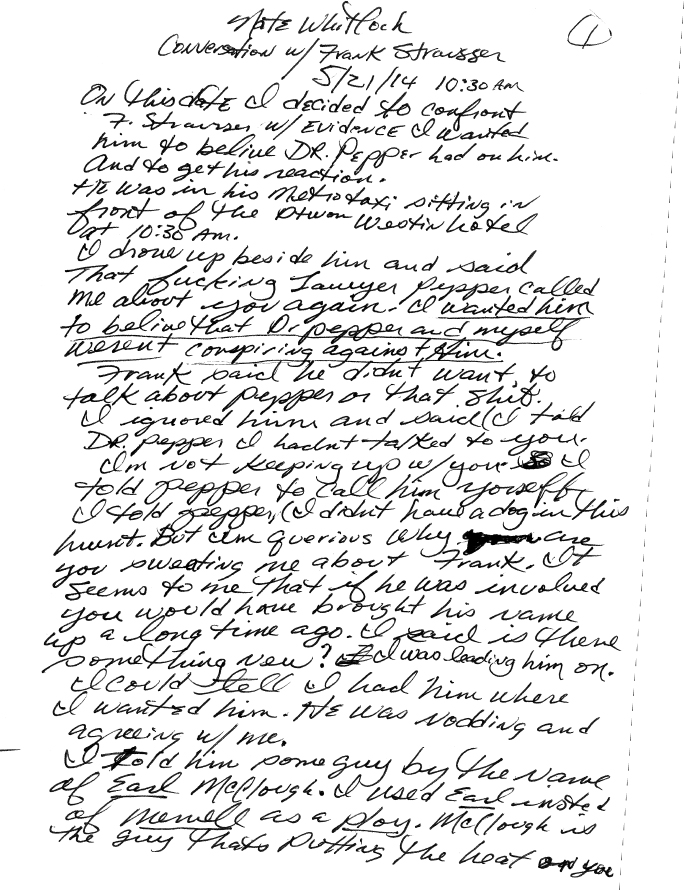 Nate Whitlock
1
Conversation w/ Frank Strausser
5/21/14 10:30 AM
On this date I decided to confront
F. Strausser w/ Evidence I wanted
him to belive DR. Pepper had on him.
And to get his reaction.
HE was in his Metro taxi sitting in
front of the Dtwon Westin hotel
at 10:30 AM.
I drove up beside him and said
That fucking Lawyer Pepper called
me about you again. I wanted him
to belive that Dr pepper and myself
werent conspiring against Him.
Frank said he didnt want to
talk about pepper or that shit.
I ignored him and said (I told
DR. pepper I hadnt talked to you.
Im not keeping up w/ you. I
told pepper to call him yorself
I told pepper, (I didn't have a dog in this
hunt. But Im querious why are
you sweating me about Frank. It
seems to me that if he was involved
you would have brought his name
up a long time ago. I said is there
something new? I was leading him on.
I could tell I had him where
I wanted him. HE was nodding and
agreeing w/ me.
I told him some guy by the name
of Earl McClough. I used Earl insted
of Merrell as a ploy. McClough is
the guy thats putting the heat on you